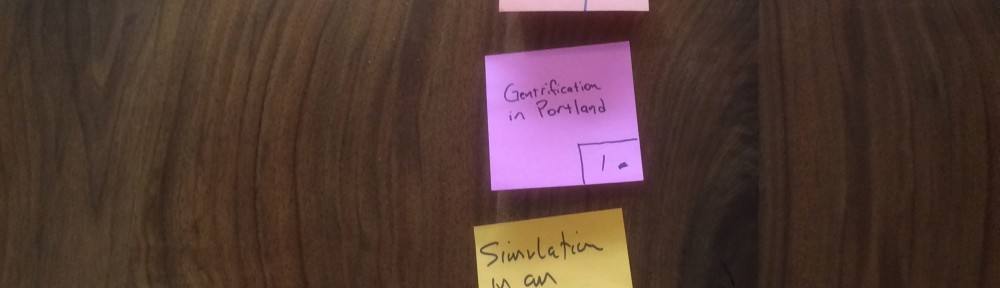 Gentrification
in Portland
1
Simulation
in an